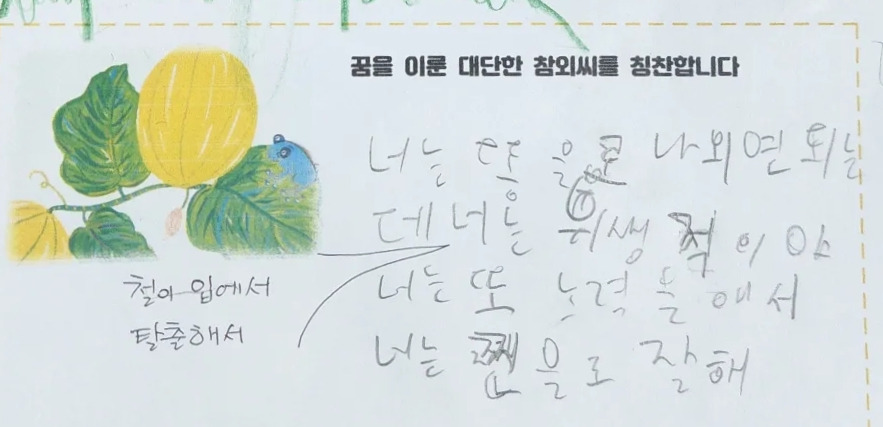 꿈을 이룬 대단한 참외씨를 칭찬합니다
너는 똥 을로 나외면 되는
데 너는 위생적이야
너는 또 노력을해서
너는 을로 잘해
철이 입에서
탈출해서